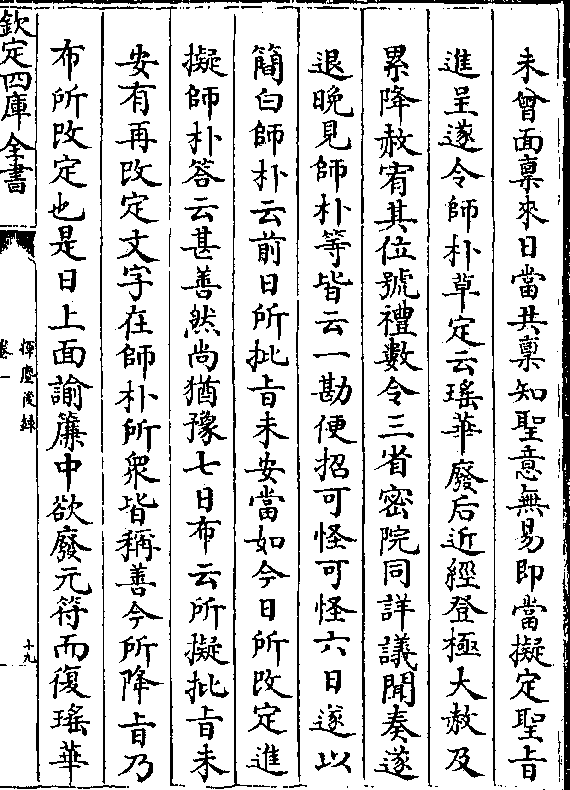 未曾面稟來日當共稟知聖意無易即當擬定聖旨
進呈遂令師朴草定云瑤華廢后近經登極大赦及
累降赦宥其位號禮數令三省密院同詳議聞奏遂
退晚見師朴等皆云一勘便招可怪可怪六日遂以
簡白師朴云前日所批旨未安當如今日所改定進
擬師朴答云甚善然尚猶豫七日布云所擬批旨未
安有再改定文字在師朴所衆皆稱善今所降旨乃
布所改定也是日上面諭簾中欲廢元符而復瑤華
欽定四庫全書
揮麈後録
卷一
十九